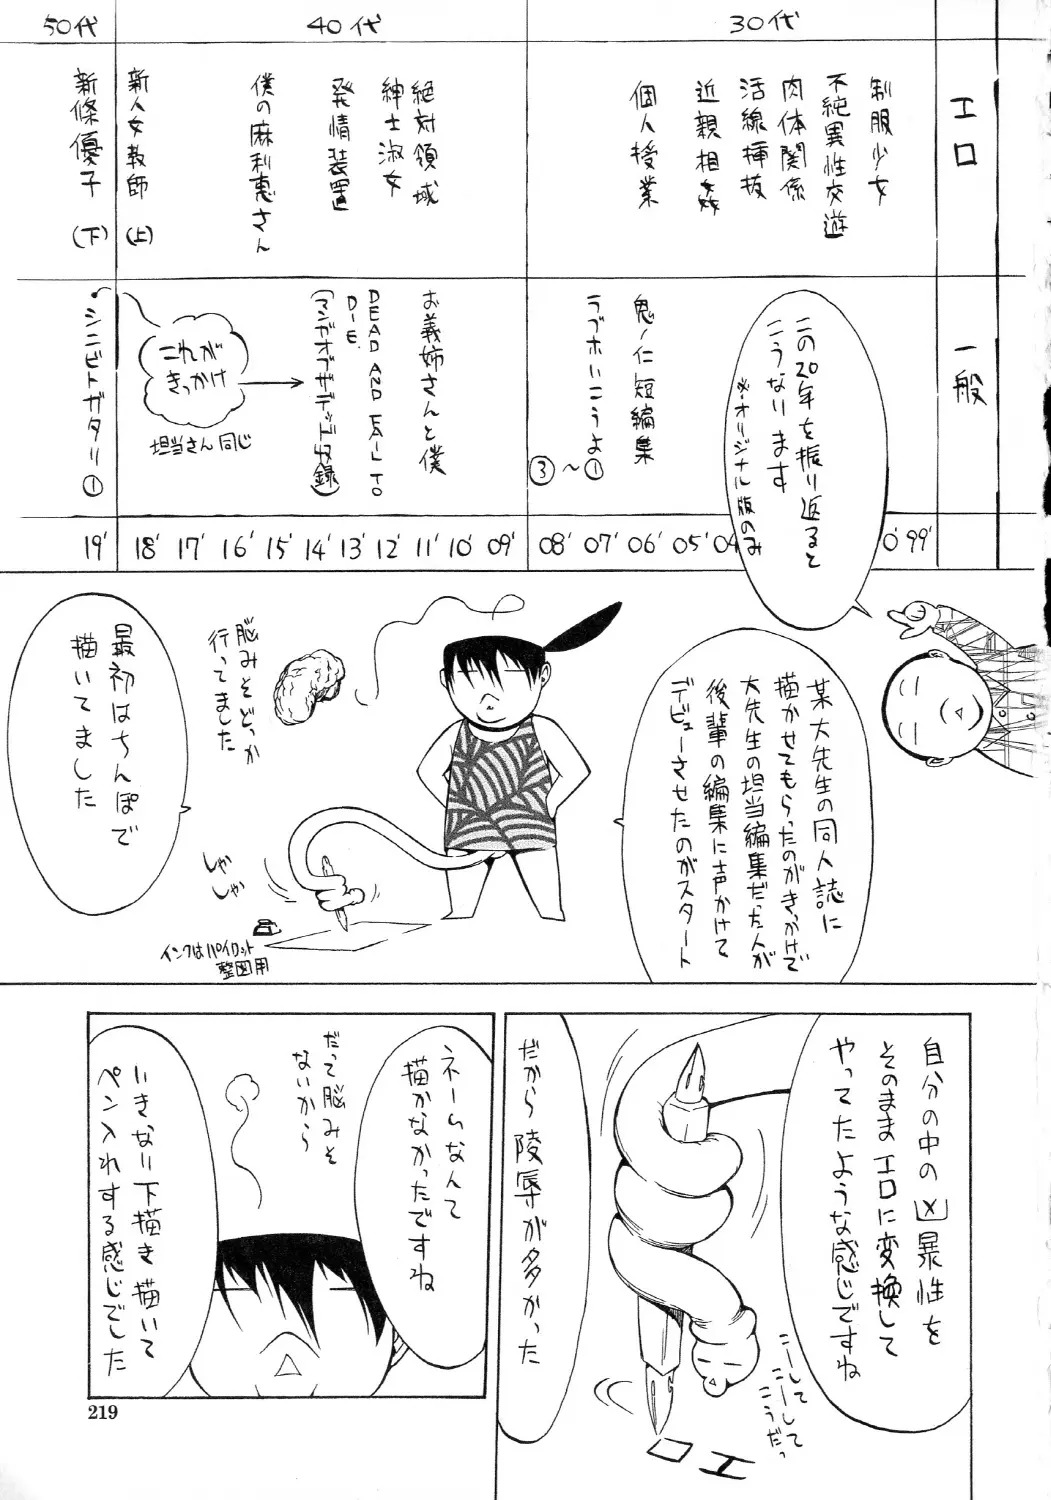 30代
40代
50代
エロ
制服少女
不純異性交遊
肉体関係
活線挿抜
近親相姦
個人授業
絶対領域
紳士淑女
発情装置
僕の麻利恵さん
新人女教師(上)
新條優子(下)
一般
鬼ノ仁短編集
ラブホいこうよ①〜③
お義姉さんと僕
DEAD AND FAIL TO
DIE
(マンガオブザデッド収録)
これが
きっかけ
担当さん同じ
シニビトガタリ①
99'
0
04
05'
06'
07'
08'
09'
10'
11'
12'
13'
14'
15'
16'
17'
18'
19'
この20年を振り返ると
こうなります
※オリジナル版のみ
某大先生の同人誌に
描かせてもらったのがきっかけで
大先生の担当編集だった人が
後輩の編集に声かけて
デビューさせたのがスタート
脳みそどっか
行ってました
最初はちんぽで
描いてました
しゃか
しゃか
インクはパイロット
製図用
自分の中の凶暴性を
そのままエロに変換して
やってたような感じですね
こーして
こーして
こうだっ
エロ
だから陵辱が多かった
ネームなんて
描かなかったですね
だって脳みそ
ないから
いきなり下描き描いて
ペン入れする感じでした
219